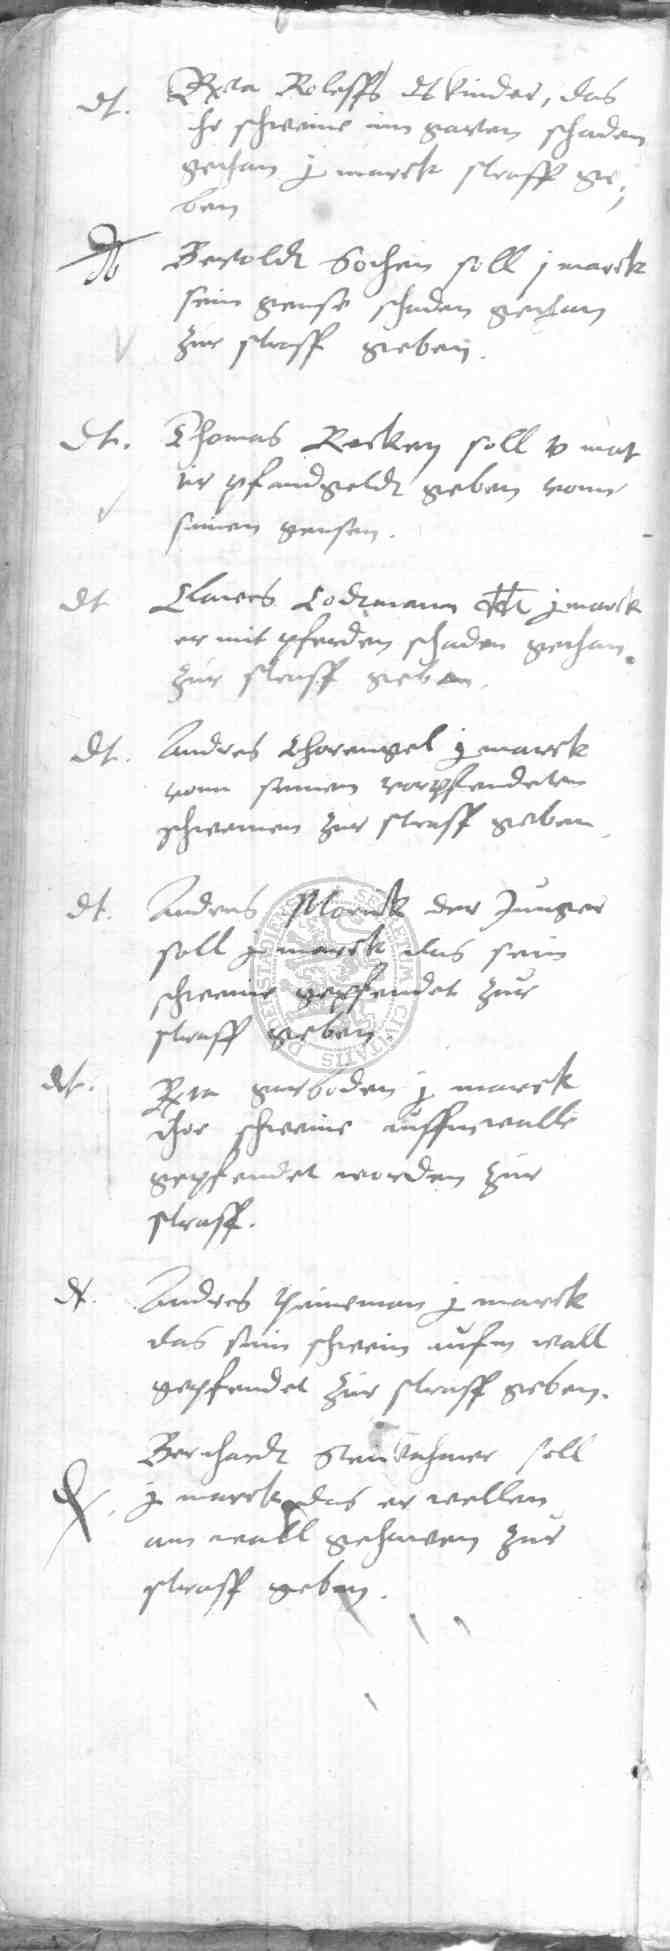 dt. Rxta Roleffs et kinder, das
ihr schweine im garten schaden
gethan j marck straff ge,
ben
Bertoldt Bochein soll j marck
sein gense schaden gethan
zur straff geben.
dt. Thomas Recken soll v mat
ir pfandgeldt geben vonn
seinen gensen.
dt Clawes Lodtmann j marck
er mit pferden schaden gethan.
zur straff geben.
dt. Andres Thorengel j marck
vonn seinen vorpfendeten
schweinen zur straff geben
dt. Andres Morick der Junger
soll j marck das sein
schweine gepfendet zur
straff geben
dt. Rxta garboden j marck
ihre schweine auffm walle
gepfendet worden zur
straff.
dt. Andres heineman j marck
das sein schwein aufm wall
gepfendet zur straff geben.
Berchardt soll
j marck das er wellen
am wall gehawen zur
straff geben.
SECRETUM CIVITATIS